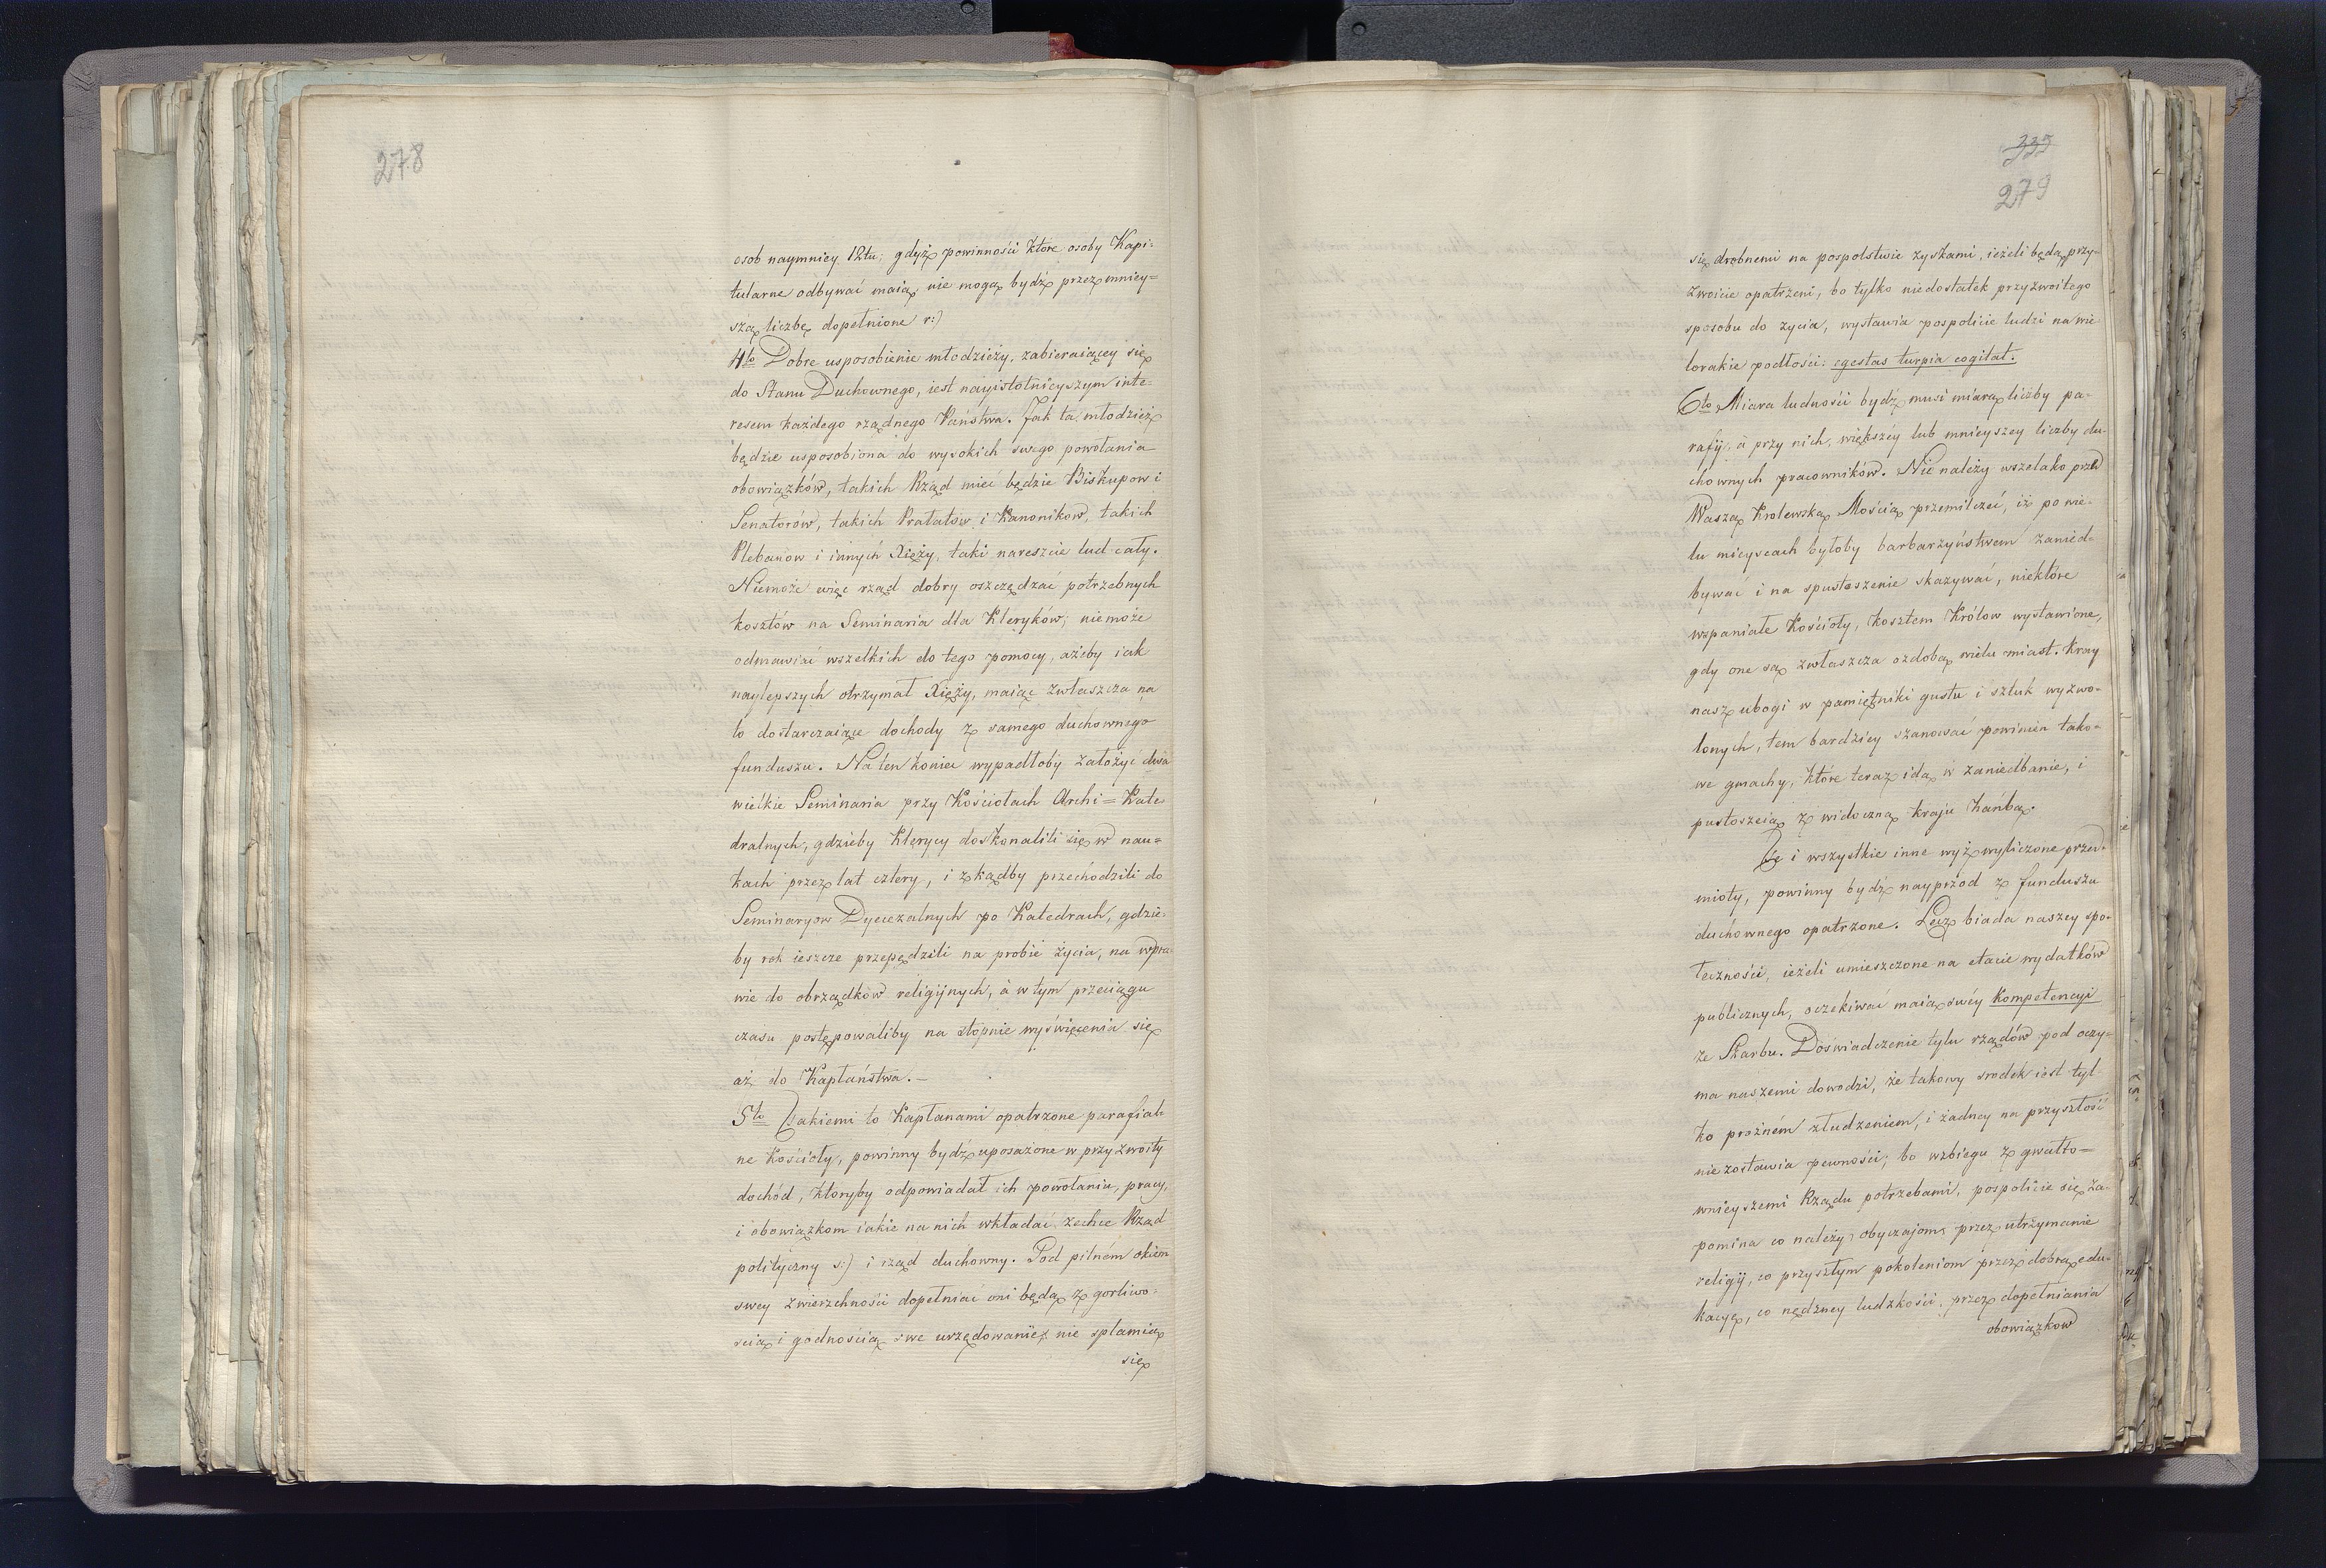 278
osob naymniey 12tu; gdyż powinności które osoby Kapi=
tularne odbywać maią, nie mogą bydź przez mniey=
szą liczbę dopełnione r:)
4to Dobre usposobienie młodzieży, zabieraiącey się
do Stanu Duchownego, iest nayistotnieyszym inte=
resem każdego rządnego Państwa. Jak ta młodzież
będzie usposobiona do wysokich swego powołania
obowiązków, takich Rząd mieć będzie Biskupow i
Senatorów, takich Prałatów i Kanonikow, takich
Plebanow i innych Xięży, taki nareszcie lud cały.
Niemoże więc rząd dobry oszczędzać potrzebnych
kosztów na Seminaria dla Kleryków; niemoże
odmawiać wszelkich do tego pomocy, ażeby iak
naylepszych otrzymał Xięży, maiąc zwłaszcza na
to dostarczaiące dochody z samego duchownego
funduszu. Na ten koniec wypadłoby założyć dwa
wielkie Seminaria przy Kościołach Archi=Kate
dralnych, gdzieby Klerycy doskonalili się w nau=
kach przez lat cztery, i zkądby przechodzili do
Seminaryow Dyecezalnych po Katedrach, gdzie=
by rok ieszcze przepędzili na probie życia, na wpra=
wie do obrządków religijnych, á w tym przeciągu
czasu postępowaliby na stopnie wyświęcenia się
aż do Kapłaństwa.—
5to Takiemi to Kapłanami opatrzone parafial=
ne Kościoły, powinny bydź uposażone w przyzwoity
dochód, któryby odpowiadał ich powołaniu, pracy,
i obowiązkom iakie na nich wkładać zechce Rząd
polityczny s:) i rząd duchowny. Pod pilném okiem
swey zwierzchności dopełniać oni będą z gorliwo=
scią i godnością swe urzędowanie, nie splamią
się
335
279
się drobnemi na pospolstwie zyskami, ieżeli będą przy=
zwoicie opatrzeni, bo tylko niedostatek przyzwoitego
sposobu do życia, wystawia pospolicie ludzi na wie
lorakie podłości: egestas turpia cogitat.
6to Miara ludności bydź musi miarą liczby pa=
rafij, á przy nich, większéy lub mnieyszey liczby du=
chownych pracowników. Nie należy wszelako przed
Waszą Krolewską Mością przemilczeć, iż po wie=
lu mieyscach byłoby barbarzyństwem zanied=
bywać i na spustoszenie skazywać, niektóre
wspaniałe Kościoły, kosztem Królow wystawione,
gdy one są zwłaszcza ozdobą wielu miast. Kray
nasz ubogi w pamiętniki gustu i sztuk wyzwo=
lonych, tem bardziey szanować powinien tako=
we gmachy, które teraz idą w zaniedbanie, i
pustoszeią z widoczną kraju hańbą.
Te i wszystkie inne wyż wyliczone przed=
mioty, powinny bydź nayprzod z funduszu
duchownego opatrzone. Lecz biada naszey spo=
łeczności, ieżeli umieszczone na etacie wydatków
publicznych, oczekiwać maią swéy Kompetencyi
ze Skarbu. Doświadczenie tylu rządów pod oczy=
ma naszemi dowodzi, że takowy srodek iest tyl=
ko prożném złudzeniem, i żadney na przyszłość
nie zostawia pewności; bo w zbiegu z gwałto=
wnieyszemi Rządu potrzebami, pospolicie się za=
pomina co należy obyczajom, przez utrzymanie
religij, co przyszłym pokoleniom przez dobrą edu=
kacyę, co nędzney ludzkości, przez dopełniania
obowiązkow